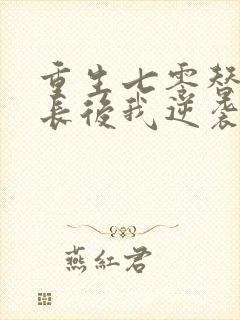 重生七零替
長後我逆襲
燕紅君